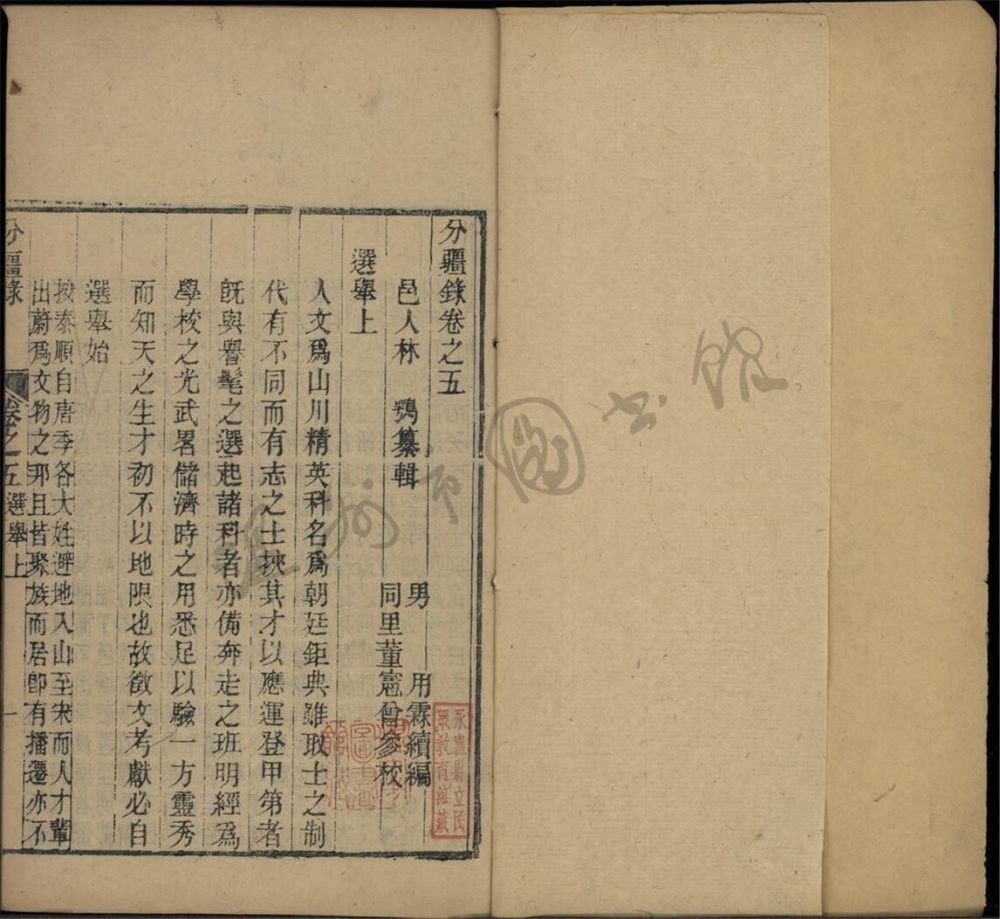 分疆錄卷之五
邑人林　鶚纂輯　男　用霖續編
同里董憲曾參校
選舉上
人文爲山川精英科名爲朝廷鉅典雖取士之制
代有不同而有志之士挾其才以應運登甲第者
旣與譽髦之選起諸科者亦備奔走之班明經爲
學校之光武畧儲濟時之用悉足以驗一方靈秀
而知天之生才初不以地限也故徵文考獻必自
選舉始
按泰順自唐季各大姓避地入山至宋而人才輩
出蔚爲文物之邦且皆聚族而居卽有播遷亦不
分疆錄　卷之五 選舉上　一
永嘉縣立民
眾教育館藏
圖書館